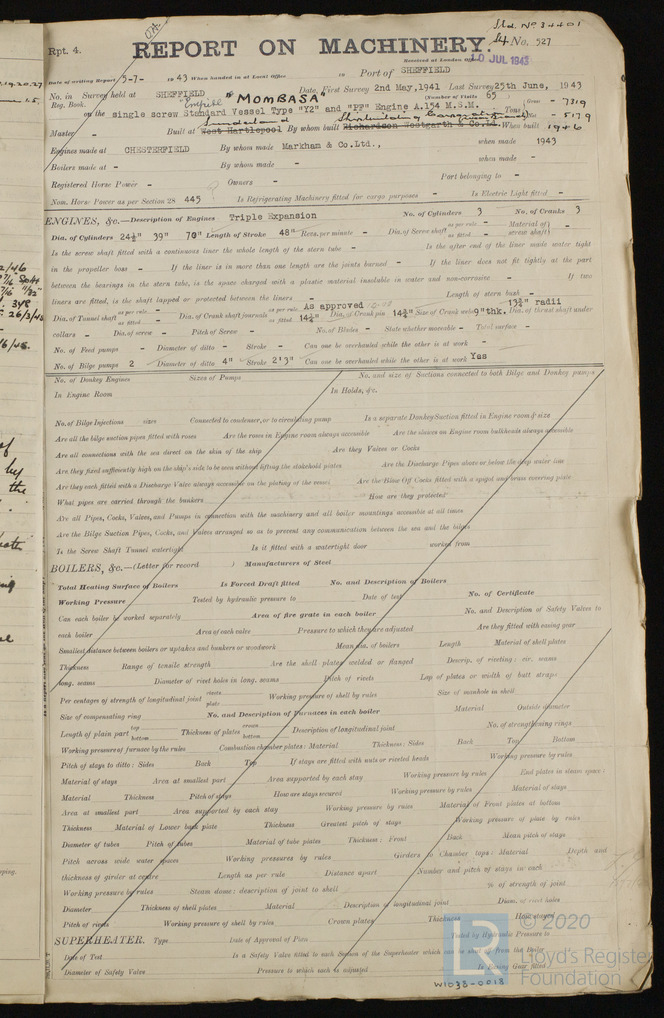 Sld. No 34401
Rpt. 4.
REPORT ON MACHINERY.
No. 527
Received at London Office 10 JUL 1943
Date of writing Report 5-7- 1943 When handed in at Local Office 19 Port of SHEFFIELD
No. in Survey held at SHEFFIELD Date, First Survey 2nd May, 1941 Last Survey 25th June, 1943
Reg. Book. (Number of Visits 65)
"EMPIRE MOMBASA"
on the single screw Standard Vessel Type "Y2" and "PF" Engine A.154 M.S.M. Tons Gross - 7319
Net - 5179
Master - Built at West Hartlepool Sunderland By whom built Richardson Westgarth & Co. Ltd. When built 1946
Engines made at CHESTERFIELD By whom made Markham & Co. Ltd., when made 1943
Boilers made at - By whom made - when made -
Registered Horse Power - Owners - Port belonging to -
Nom. Horse Power as per Section 28 445 Is Refrigerating Machinery fitted for cargo purposes - Is Electric Light fitted -
ENGINES, &c.—Description of Engines Triple Expansion No. of Cylinders 3 No. of Cranks 3
Dia. of Cylinders 24½" 39" 70" Length of Stroke 48" Revs. per minute - Dia. of Screw shaft as per rule - as fitted - Material of screw shaft -
Is the screw shaft fitted with a continuous liner the whole length of the stern tube - Is the after end of the liner made water tight
in the propeller boss - If the liner is in more than one length are the joints burned - If the liner does not fit tightly at the part
between the bearings in the stern tube, is the space charged with a plastic material insoluble in water and non-corrosive - If two
liners are fitted, is the shaft lapped or protected between the liners - Length of stern bush -
Dia. of Tunnel shaft as per rule - as fitted - Dia. of Crank shaft journals as per rule As approved as fitted 14¾" Dia. of Crank pin 14¾" Size of Crank webs 9"thk. 13¾" radii Dia. of thrust shaft under
collars - Dia. of screw - Pitch of Screw - No. of Blades - State whether moveable - Total surface -
No. of Feed pumps - Diameter of ditto - Stroke - Can one be overhauled while the other is at work -
No. of Bilge pumps 2 Diameter of ditto 4" Stroke 2'3" Can one be overhauled while the other is at work Yes
No. of Donkey Engines Sizes of Pumps No. and size of Suctions connected to both Bilge and Donkey pumps
In Engine Room In Holds, &c.
No. of Bilge Injections sizes Connected to condenser, or to circulating pump Is a separate Donkey Suction fitted in Engine room & size
Are all the bilge suction pipes fitted with roses Are the roses in Engine room always accessible Are the sluices on Engine room bulkheads always accessible
Are all connections with the sea direct on the skin of the ship Are they Valves or Cocks
Are they fixed sufficiently high on the ship's side to be seen without lifting the stokehold plates Are the Discharge Pipes above or below the deep water line
Are they each fitted with a Discharge Valve always accessible on the plating of the vessel Are the Blow Off Cocks fitted with a spigot and brass covering plate
What pipes are carried through the bunkers How are they protected
Are all Pipes, Cocks, Valves, and Pumps in connection with the machinery and all boiler mountings accessible at all times
Are the Bilge Suction Pipes, Cocks, and Valves arranged so as to prevent any communication between the sea and the bilges
Is the Screw Shaft Tunnel watertight Is it fitted with a watertight door worked from
BOILERS, &c.—(Letter for record ) Manufacturers of Steel
Total Heating Surface of Boilers Is Forced Draft fitted No. and Description of Boilers
Working Pressure Tested by hydraulic pressure to Date of test No. of Certificate
Can each boiler be worked separately Area of fire grate in each boiler No. and Description of Safety Valves to
each boiler Area of each valve Pressure to which they are adjusted Are they fitted with easing gear
Smallest distance between boilers or uptakes and bunkers or woodwork Mean dia. of boilers Length Material of shell plates
Thickness Range of tensile strength Are the shell plates welded or flanged Descrip. of riveting: cir. seams
long. seams Diameter of rivet holes in long. seams Pitch of rivets Lap of plates or width of butt straps
Per centages of strength of longitudinal joint rivets plate Working pressure of shell by rules Size of manhole in shell
Size of compensating ring No. and Description of Furnaces in each boiler Material Outside diameter
Length of plain part top bottom Thickness of plates crown bottom Description of longitudinal joint No. of strengthening rings
Working pressure of furnace by the rules Combustion chamber plates: Material Thickness: Sides Back Top Bottom
Pitch of stays to ditto: Sides Back Top If stays are fitted with nuts or riveted heads Working pressure by rules
Material of stays Area at smallest part Area supported by each stay Working pressure by rules End plates in steam space:
Material Thickness Pitch of stays How are stays secured Working pressure by rules Material of stays
Area at smallest part Area supported by each stay Working pressure by rules Material of Front plates at bottom
Thickness Material of Lower back plate Thickness Greatest pitch of stays Working pressure of plate by rules
Diameter of tubes Pitch of tubes Material of tube plates Thickness: Front Back Mean pitch of stays
Pitch across wide water spaces Working pressures by rules Girders to Chamber tops: Material Depth and
thickness of girder at centre Length as per rule Distance apart Number and pitch of stays in each
Working pressure by rules Steam dome: description of joint to shell % of strength of joint
Diameter Thickness of shell plates Material Description of longitudinal joint Diam. of rivet holes
Pitch of rivets Working pressure of shell by rules Crown plates Thickness How stayed
SUPERHEATER. Type Date of Approval of Plan Tested by Hydraulic Pressure to
Date of Test Is a Safety Valve fitted to each Section of the Superheater which can be shut off from the Boiler
Diameter of Safety Valve Pressure to which each is adjusted Is Easing Gear fitted
© 2020
Lloyd's Register
Foundation
W1038-0018